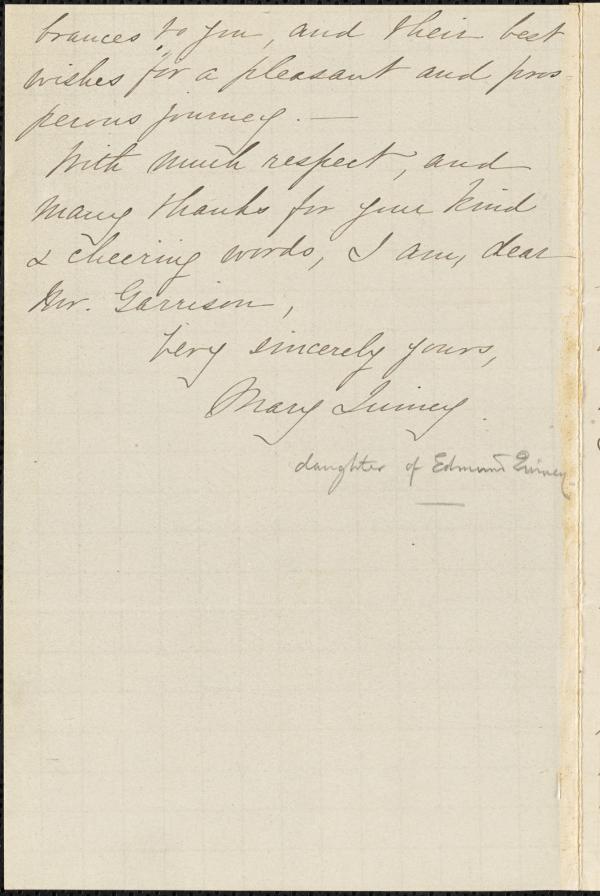 brances to you, and their best
wishes for a pleasant and pros-
perous journey. —
With much respect, and
many thanks for your kind
& cheering words, I am, dear
Mr. Garrison,
Very sincerely yours,
Mary Quincy.
daughter of Edmund Quincy.